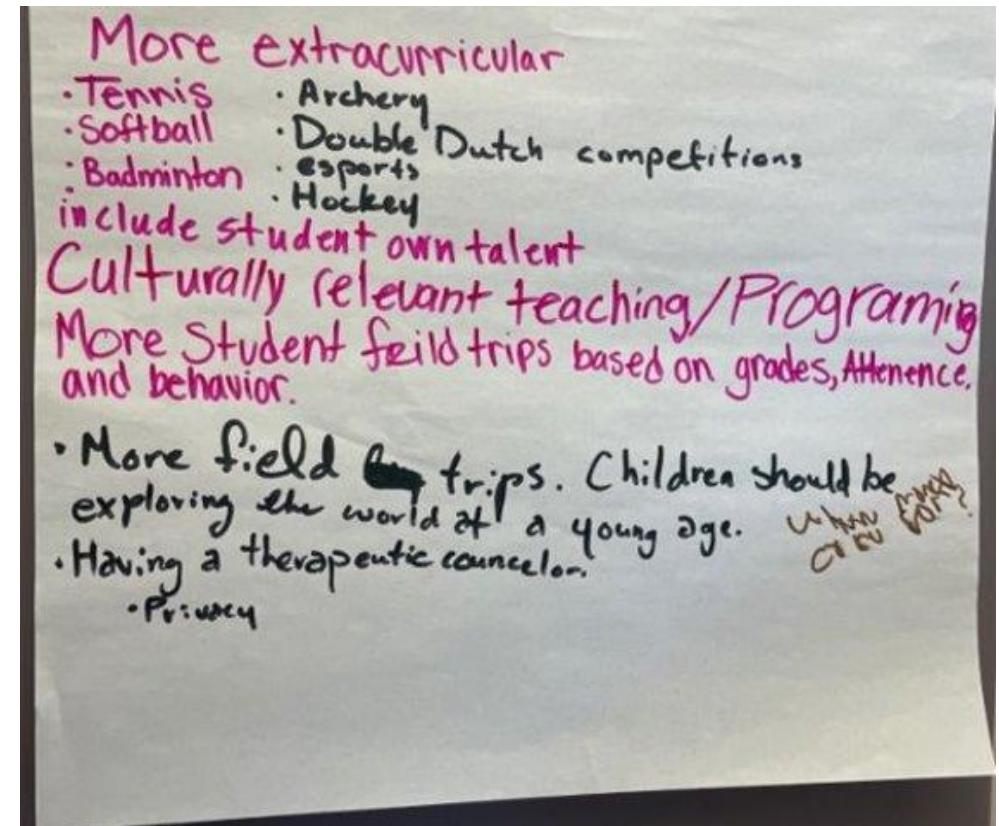 More extracurricular
· Tennis
· Softball
· Badminton
· Archery
· Double Dutch competitions
· esports
· Hockey
include student own talent
Culturally relevant teaching/Programing
More Student feild trips based on grades, Attenence,
and behavior.
· More field trips. Children should be
exploring the world at a young age.
· Having a therapeutic councelor.
· Privacy